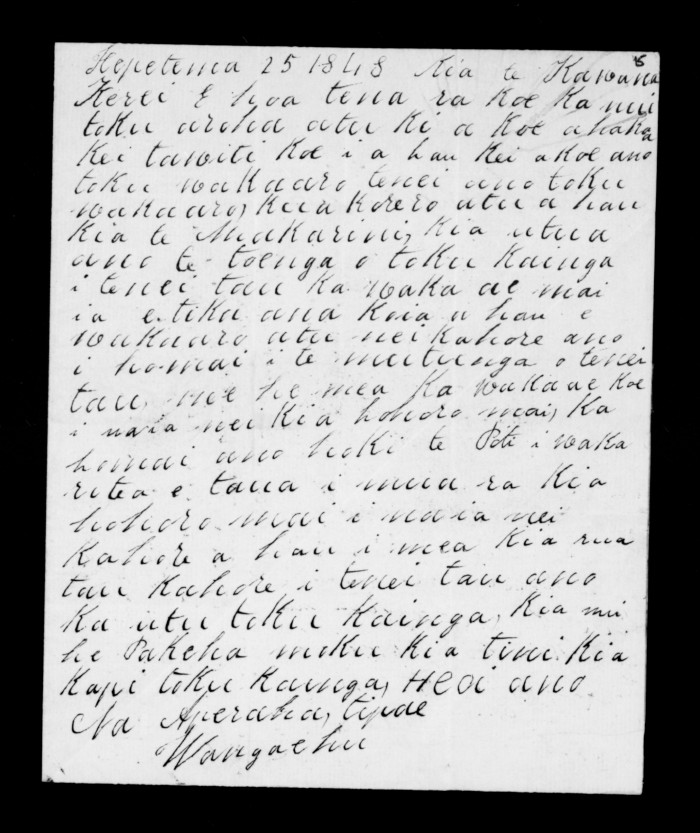 8
Hepetema 25 1848 Kia te Kawana
Kerei E hoa tena ra koe ka nui
toku aroha atu ki a koe ahaka
kei tawiti koe i a hau kei a koe ano
toku wakaaro tenei ano toku
wakaaro, kua korero atu a hau
kia te Makarini, kia utua
ano te toenga o toku kainga
i tenei tau ka waka ae mai
ia e tika ana koia a hau e
wakaaro atu nei kahore ano
i homai i te mutunga o tenei
tau, me he mea ka wakaae koe
i naia nei kia hohoro mai, ka
homai ano hoki te Poti i waka
ritea e taua i mua ra kia
hohoro mai i naia nei
kahore a hau i mea kia rua
tau kahore i tenei tau ano
ka utu toku kainga, kia nui
he Pakeha moku kia tini kia
kapi toku kainga, Heoi ano
Na Aperaha, tipae
Wangaehu